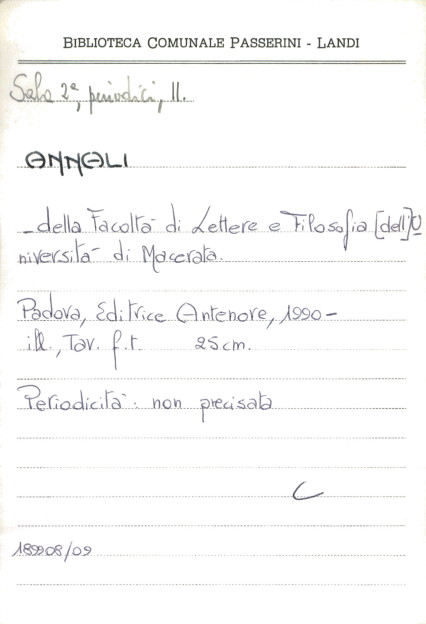 BIBLIOTECA COMUNALE PASSERINI - LANDI
Sala 2ª, periodici, II.
ANNALI
- della Facoltà di Lettere e Filosofia [dell']U
niversità di Macerata.
Padova, Editrice Antenore, 1990 -
ill., Tav. f.t. 25 cm.
Periodicità: non precisata
C
189908/09